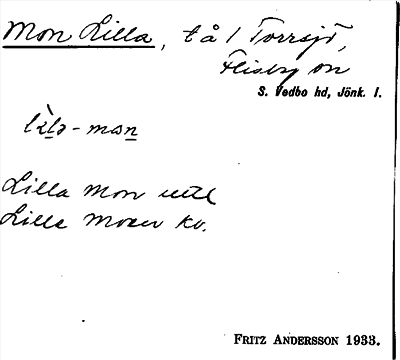 Mon Lilla, tå 1 Torrsjö,
Flisby sn
S. Vedbo hd, Jönk. l.
Lilla Mon uttl
Lilla Moen kv.
FRITZ ANDERSSON 1933.